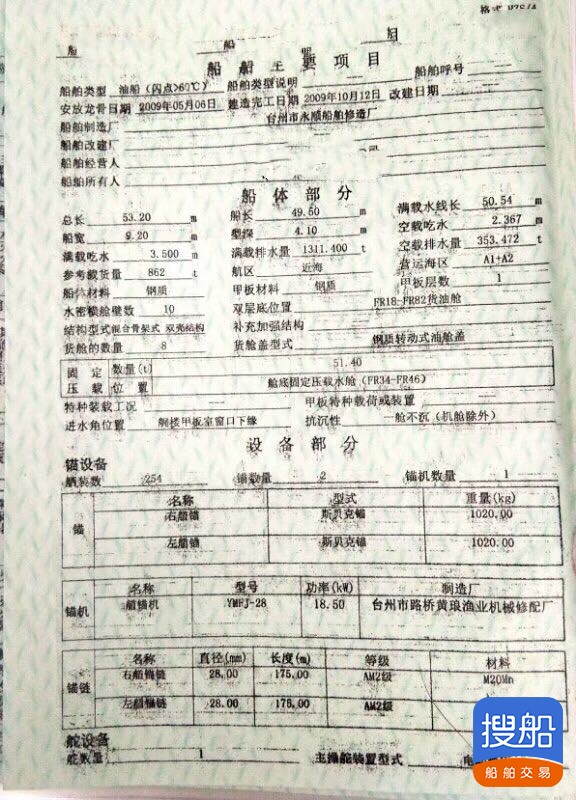 格式
船 船
船舶主要项目
船舶类型 油船（闪点>60℃） 船舶类型说明 船舶呼号
安放龙骨日期 2009年05月06日 建造完工日期 2009年10月12日 改建日期
船舶制造厂 台州市永顺船舶修造厂
船舶改建厂
船舶经营人
船舶所有人
船体部分
总长 53.20 m 船长 49.50 m 满载水线长 50.54 m
船宽 9.20 m 型深 4.10 m 空载吃水 2.367 m
满载吃水 3.500 m 满载排水量 1311.400 t 空载排水量 353.472 t
参考载货量 862 t 航区 近海 营运海区 A1+A2
船体材料 钢质 甲板材料 钢质 甲板层数 1
水密横舱壁数 10 双层底位置 FR18-FR82货油舱
结构型式 混合骨架式 双壳结构 补充加强结构
货舱的数量 8 货舱盖型式 钢质转动式油舱盖
固定压载 数量(t) 51.40
位置 舱底固定压载水舱（FR34-FR46）
特种装载工况 甲板特种载荷或装置
进水角位置 艉楼甲板室窗口下缘 抗沉性 一舱不沉（机舱除外）
设备部分
锚设备
舾装数 254 锚数量 2 锚机数量 1
锚 名称 型式 重量(kg)
右艏锚 斯贝克锚 1020.00
左艏锚 斯贝克锚 1020.00
锚机 名称 型号 功率(kW) 制造厂
艏锚机 YMFJ-28 18.50 台州市路桥黄琅渔业机械修配厂
锚链 名称 直径(mm) 长度(m) 等级 材料
右艏锚链 28.00 175.00 AM2级 M20Mn
左艏锚链 28.00 175.00 AM2级
舵设备
舵数量 1 主操舵装置型式 电
搜船
船舶交易